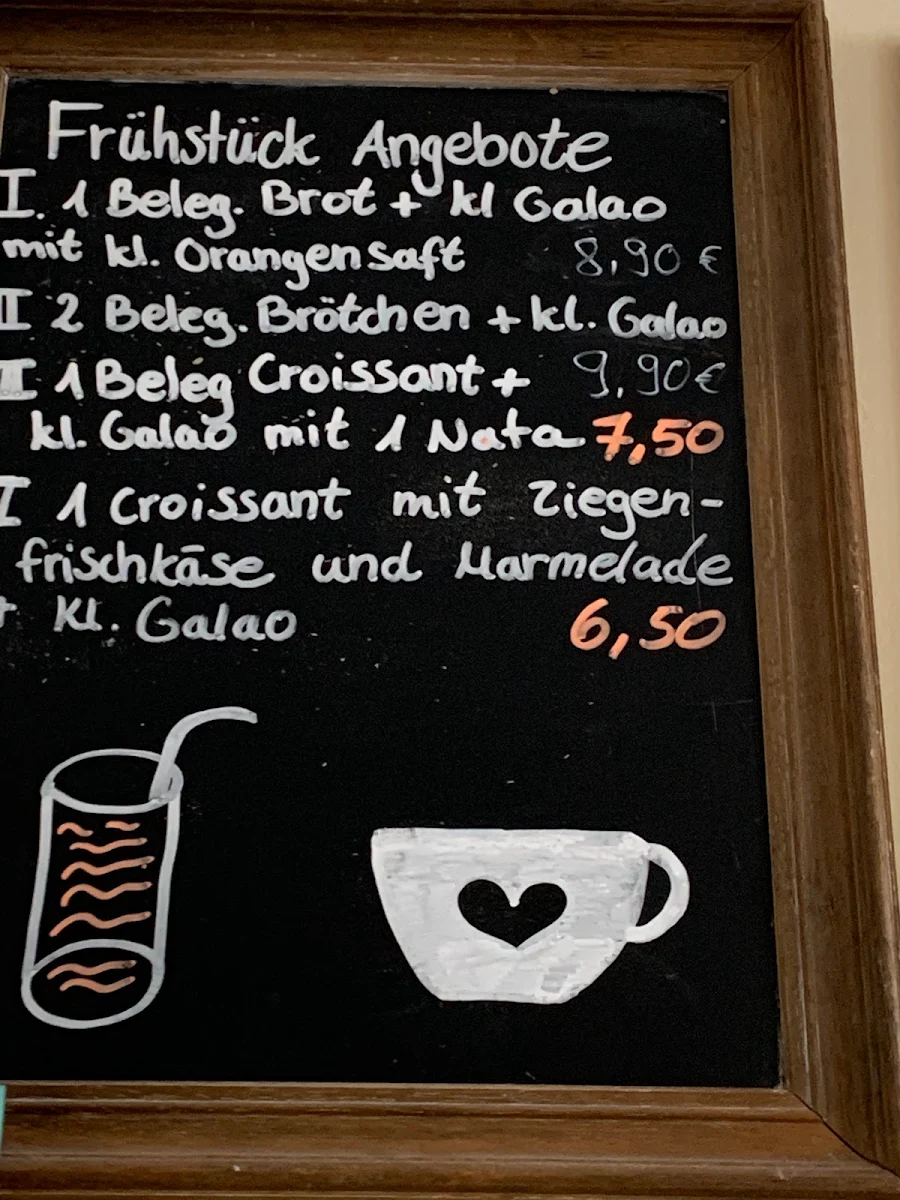 Frühstück Angebote
I. 1 Beleg. Brot + kl Galao
mit kl. Orangensaft 8,90 €
II 2 Beleg. Brötchen + kl. Galao
III 1 Beleg Croissant + 9,90 €
kl. Galao mit 1 Nata 7,50
I 1 Croissant mit Ziegen-
frischkäse und Marmelade
+ Kl. Galao 6,50